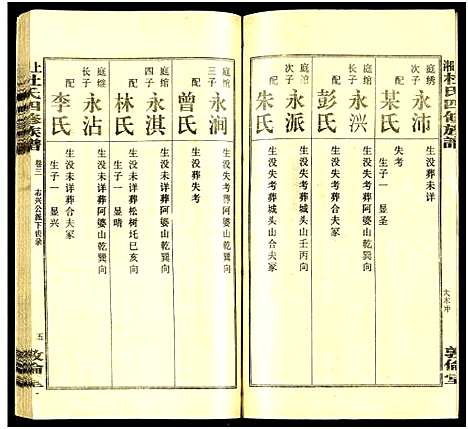 湘杜氏四修族谱
敦伦堂
庭绣 永沛
配 某氏
生没葬未详
失考
生子一 显圣
庭绾 次子 永兴
配 彭氏
生没失考葬
生没失考葬合夫冢
庭绾 次子 永派
配 朱氏
生没失考葬城头山壬丙向
生没失考葬城头山合夫冢
庭绾 三子 永涧
配 曾氏
生没葬失考
庭绾 四子 永淇
配 林氏
生没失考葬阿婆山乾巽向
生没未详葬松树圫巳亥向
生子一 显晴
庭继 长子 永沾
配 李氏
生没未详葬阿婆山乾巽向
生没未详葬合夫冢
生子一 显兴
上杜氏四修族谱
卷三二 志兴公派下齿录
五
敦伦堂